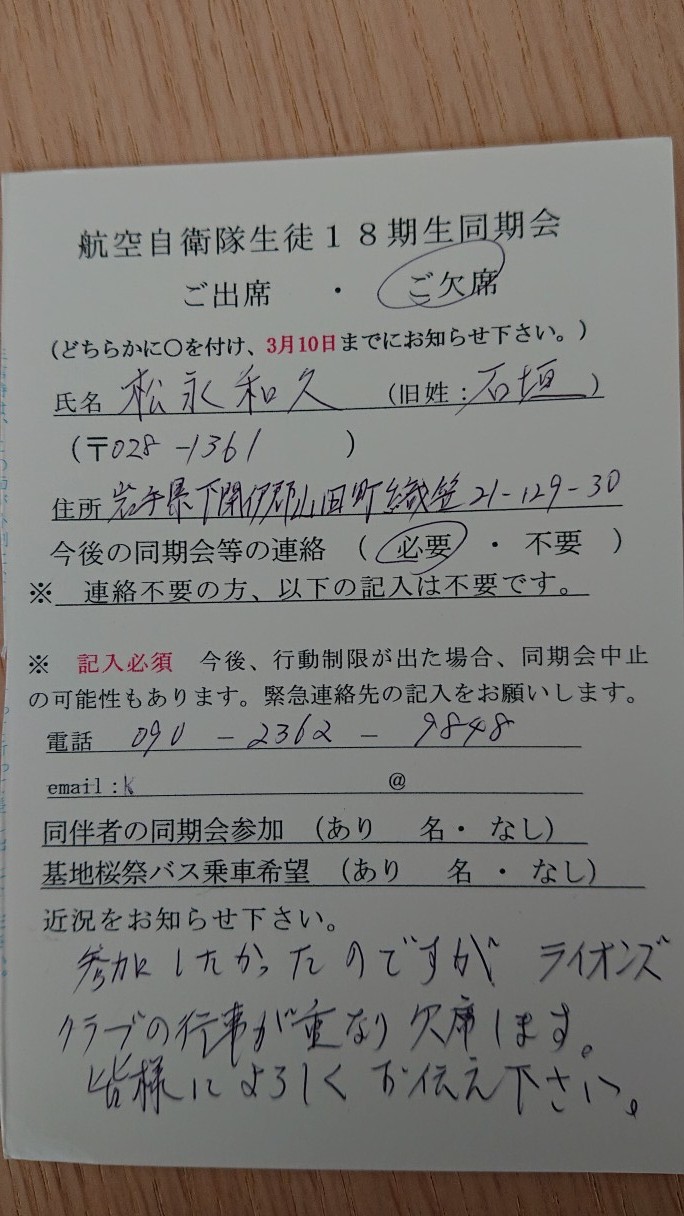 航空自衛隊生徒18期生同期会
ご出席 ・ ご欠席
(どちらかに○を付け、3月10日までにお知らせ下さい。)
氏名 松永和久 (旧姓:石垣)
(〒028-1361 )
住所 岩手県下閉伊郡山田町織笠21-129-30
今後の同期会等の連絡 ( 必要 ・ 不要 )
※ 連絡不要の方、以下の記入は不要です。
※ 記入必須 今後、行動制限が出た場合、同期会中止
の可能性もあります。緊急連絡先の記入をお願いします。
電話 090-2362-9848
email:k @
同伴者の同期会参加 (あり 名・ なし)
基地桜祭バス乗車希望 (あり 名 ・ なし)
近況をお知らせ下さい。
参加したかったのですが ライオンズ
クラブの行事が重なり欠席します。
皆様によろしくお伝え下さい。